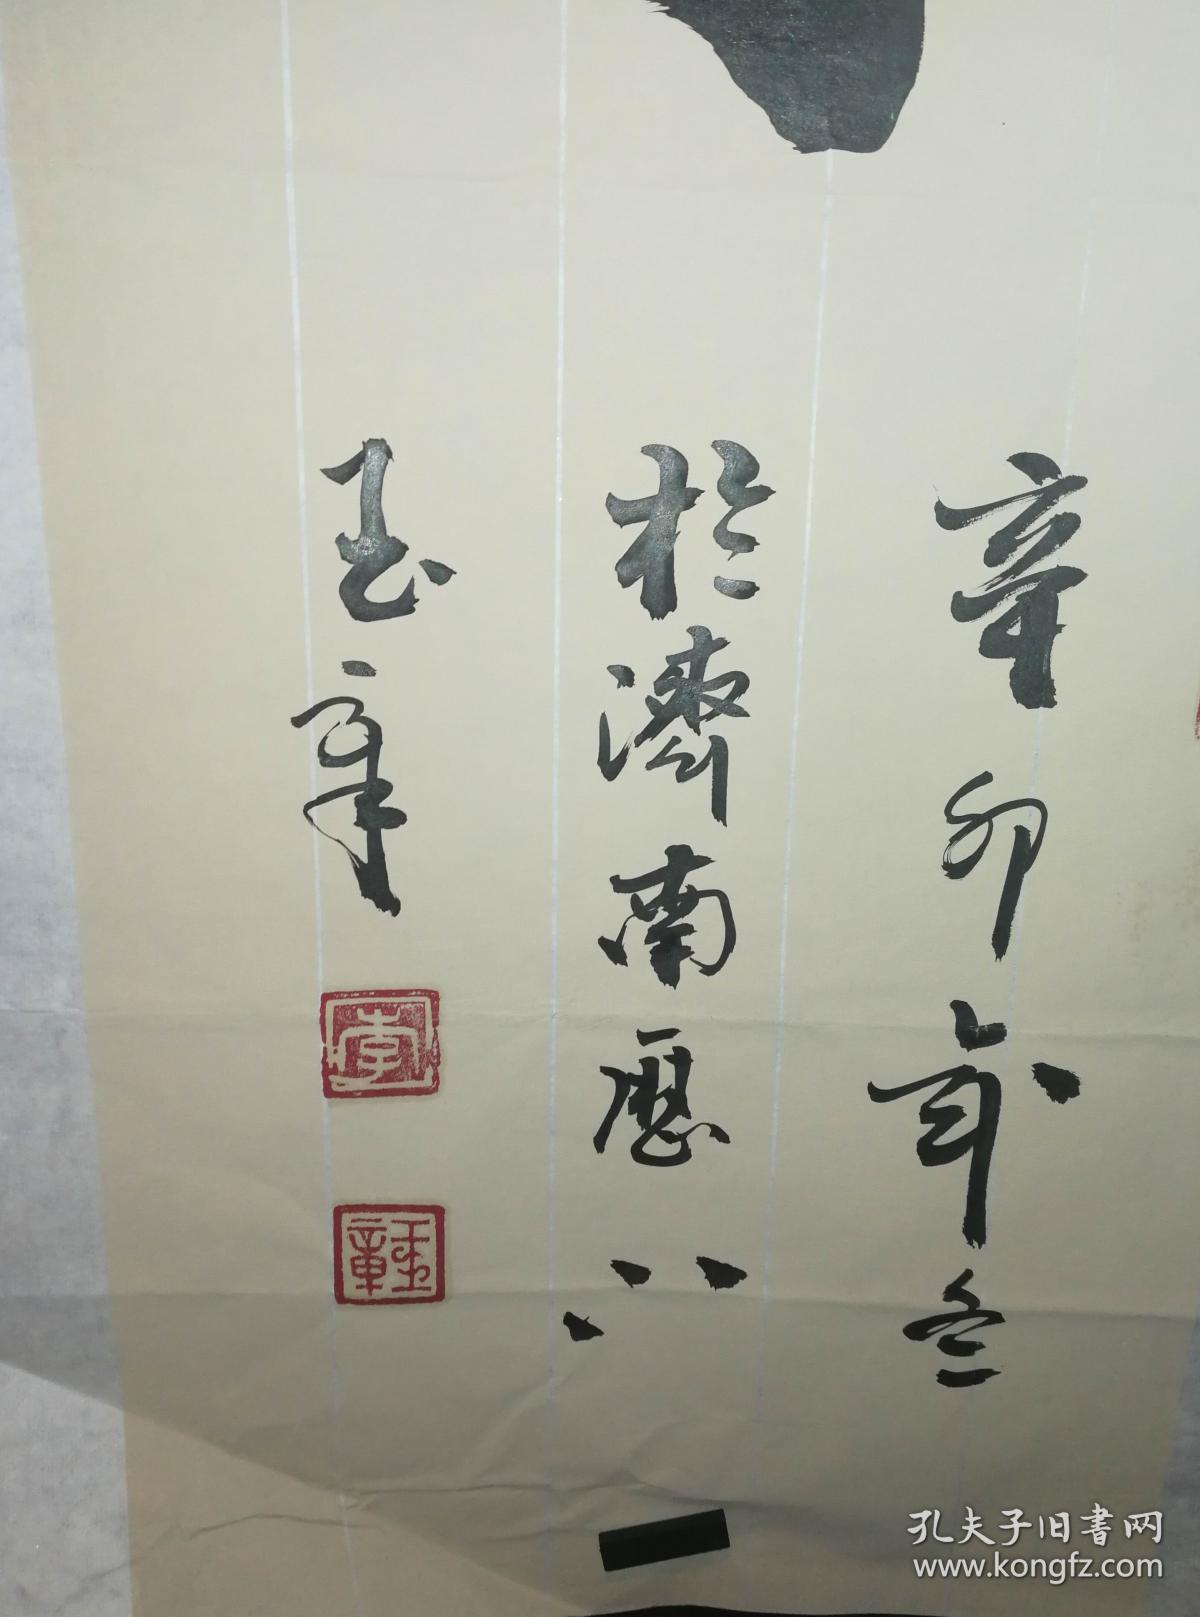 辛卯年冬
於濟南歷下
玉章
李
玉章
孔夫子旧書网
www.kongfz.com